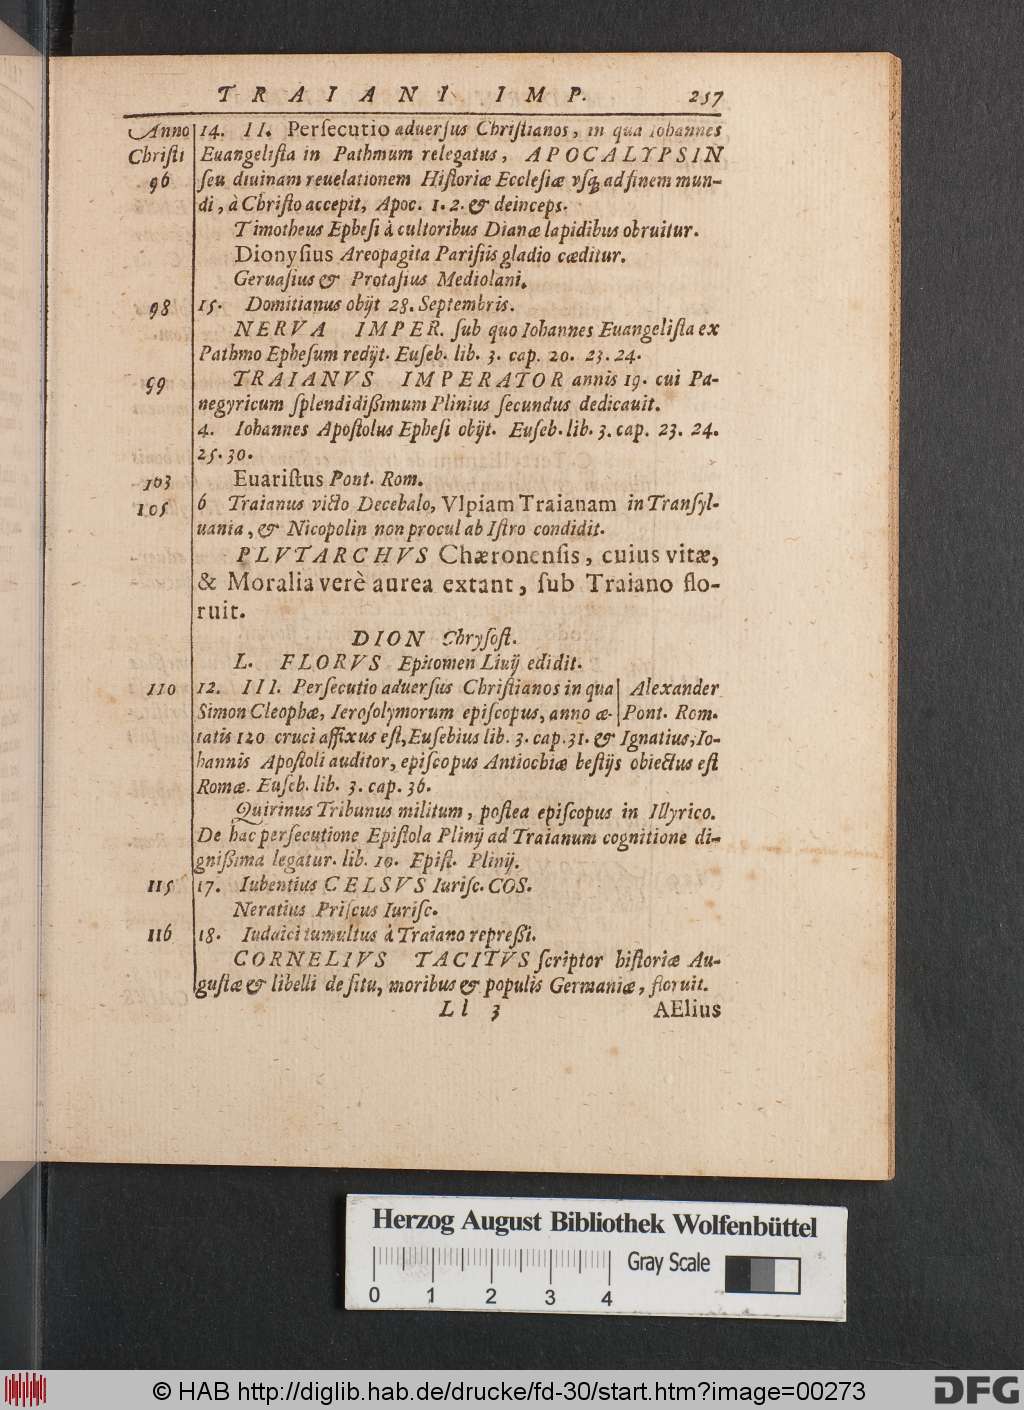 TRAIANI IMP. 257
Anno 14. II. Perſecutio aduerſus Chriſtianos, in qua Iohannes
Chriſti Euangeliſta in Pathmum relegatus, APOCALYPSIN
96 ſeu diuinam reuelationem Hiſtoriæ Eccleſiæ vſq; ad finem mun-
di, à Chriſto accepit, Apoc. 1. 2. & deinceps.
Timotheus Epheſi à cultoribus Dianæ lapidibus obruitur.
Dionyſius Areopagita Pariſiis gladio cæditur.
Geruaſius & Protaſius Mediolani.
98 15. Domitianus obijt 28. Septembris.
NERVA IMPER. ſub quo Iohannes Euangeliſta ex
Pathmo Epheſum redijt. Euſeb. lib. 3. cap. 20. 23. 24.
99 TRAIANVS IMPERATOR annis 19. cui Pa-
negyricum ſplendidißimum Plinius ſecundus dedicauit.
4. Iohannes Apoſtolus Epheſi obijt. Euſeb. lib. 3. cap. 23. 24.
25. 30.
103 Euariſtus Pont. Rom.
105 6 Traianus victo Decebalo, Vlpiam Traianam in Tranſyl-
uania, & Nicopolin non procul ab Iſtro condidit.
PLVTARCHVS Chæronenſis, cuius vitæ,
& Moralia verè aurea extant, ſub Traiano flo-
ruit.
DION Chryſoſt.
L. FLORVS Epitomen Liuij edidit.
110 12. III. Perſecutio aduerſus Chriſtianos in qua | Alexander
Simon Cleophæ, Ieroſolymorum epiſcopus, anno æ- | Pont. Rom.
tatis 120 cruci affixus eſt, Euſebius lib. 3. cap. 31. & Ignatius, Io-
hannis Apoſtoli auditor, epiſcopus Antiochiæ beſtijs obiectus eſt
Romæ. Euſeb. lib. 3. cap. 36.
Quirinus Tribunus militum, poſtea epiſcopus in Illyrico.
De hac perſecutione Epiſtola Plinij ad Traianum cognitione di-
gnißima legatur. lib. 10. Epiſt. Plinij.
115 17. Iubentius CELSVS Iuriſc. COS.
Neratius Priſcus Iuriſc.
116 18. Iudaici tumultus à Traiano repreßi.
CORNELIVS TACITVS ſcriptor hiſtoriæ Au-
guſtæ & libelli de ſitu, moribus & populis Germaniæ, floruit.
Ll 3 AElius
Herzog August Bibliothek Wolfenbüttel
Gray Scale
0 1 2 3 4
© HAB http://diglib.hab.de/drucke/fd-30/start.htm?image=00273
DFG